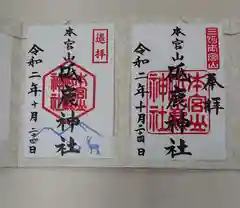 奉拝
三河本宮山
本宮山
砥鹿神社
本宮山
神社
令和二年十月二十四日
遥拝
本宮山
砥鹿神社
令和二年十月二十四日